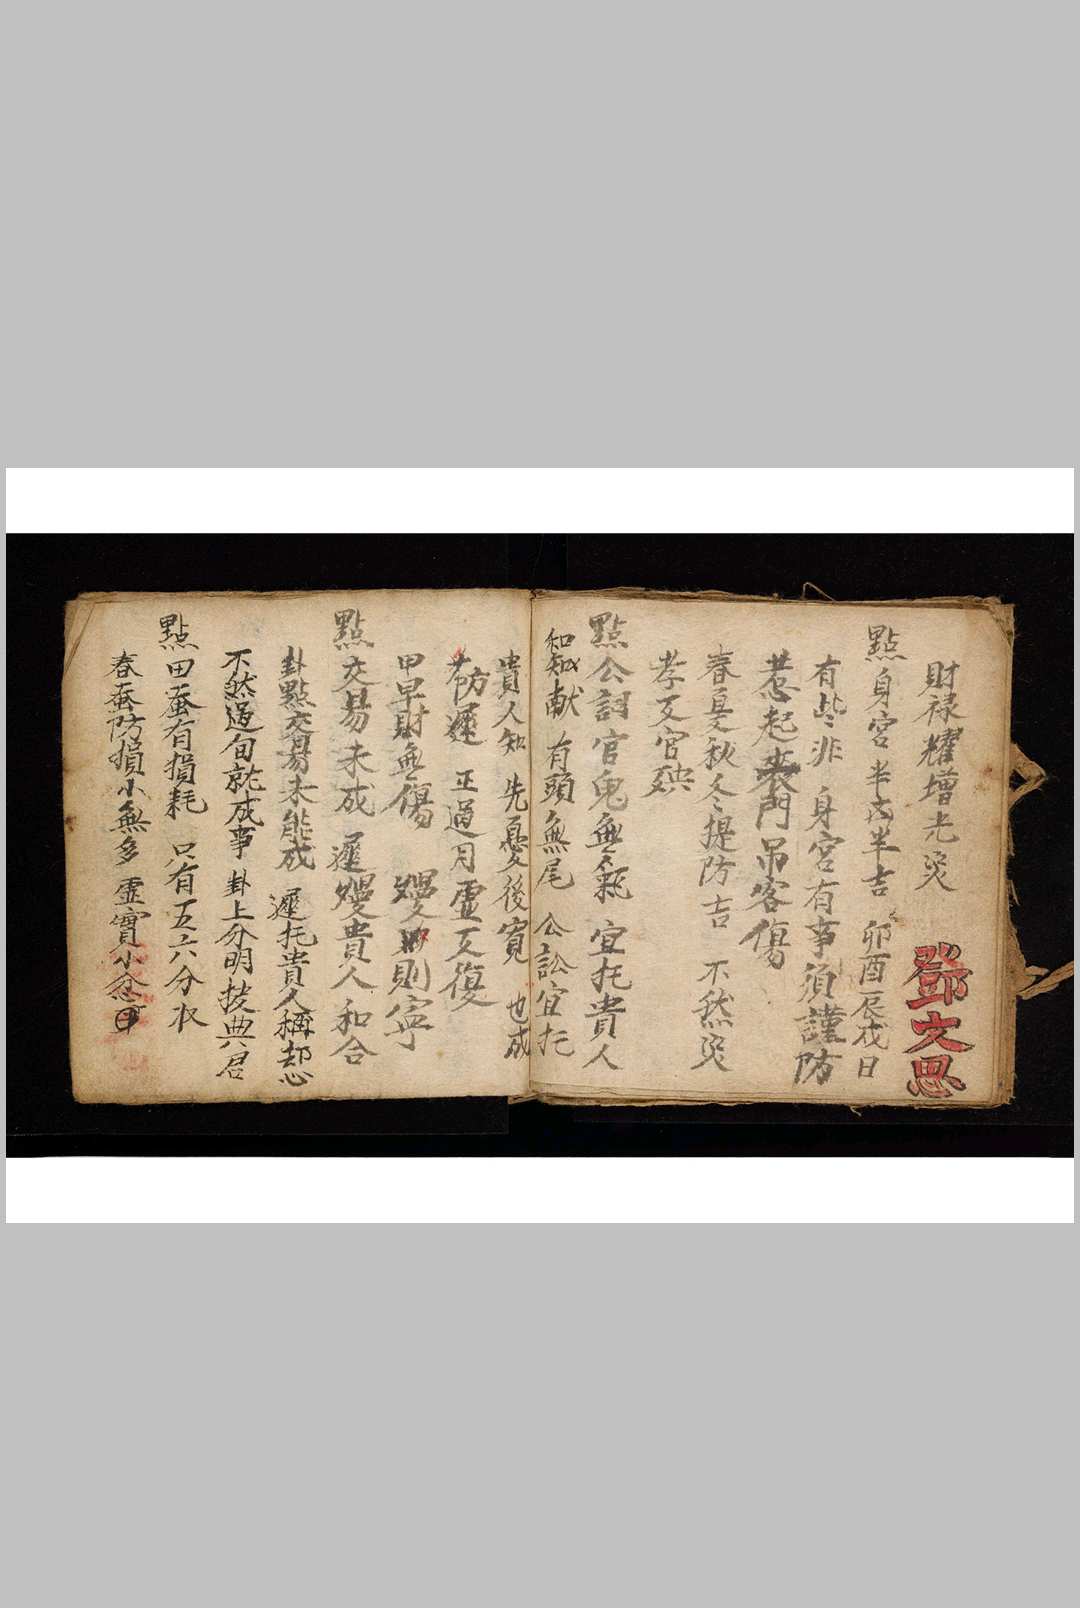 財禄耀增光災
鄧文思
點身宮半凶半吉 卯酉辰戌日
有些非 身宮有事須謹防
惹起喪門吊客傷
春夏秋冬提防吉 不然災
孝又官殃
點公訶官鬼無氣 宜托貴人
和知献 有頭無尾 公訟宜托
貴人知 先憂後寬 也成
防遲 正過月虛又復
甲早財無傷 慢則寧
點交易未成 遲慢貴人和合
卦點交易未能成 遲托貴人稱却心
不然過旬就成事 卦上分明披典君
點田蚕有損耗 只有五六分收
春蚕防損小無多 虛實小